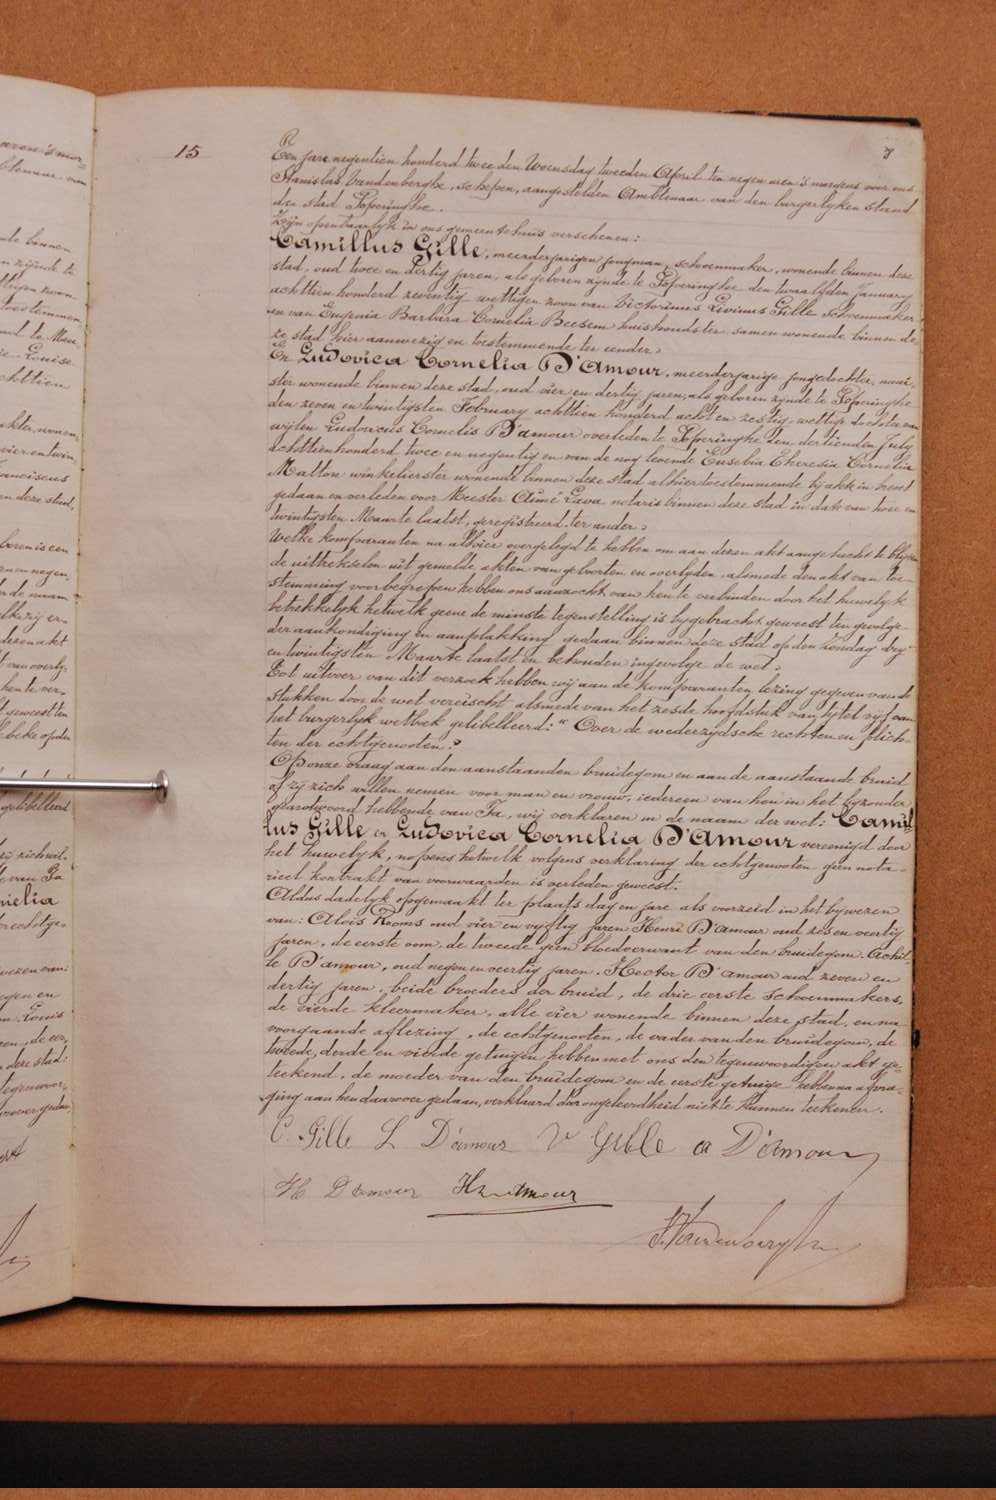 15
Ten jare negentien honderd twee den Woensdag tweeden April ten negen uren 's morgens voor ons
Stanislas Vandenberghe, schepen, aangestelden Ambtenaar van den burgerlyken stand
der stad Poperinghe.
Zijn openbaarlyk in ons gemeentehuis verschenen:
Camillus Gille, meerderjarigen jongman, schoenmaker, wonende binnen deze
stad, oud twee en dertig jaren, als geboren zijnde te Poperinghe den twaalfden January
achttien honderd zeventig wettigen zoon van Victorinus Livinus Gille schoenmaker
en van Eugenia Barbara Cornelia Beesem huishoudster samen wonende binnen de-
ze stad hier aanwezig en toestemmende ter eender,
En Ludovica Cornelia D'Amour, meerderjarige jongedochter, naai-
ster wonende binnen deze stad, oud vier en dertig jaren, als geboren zynde te Poperinghe
den zeven en twintigsten February achttien honderd acht en zestig, wettige dochter van
wijlen Ludovicus Cornelis D'amour overleden te Poperinghe den dertienden July
achttienhonderd twee en negentig en van de nog levende Eusebia Theresia Cornelia
Matton winkelierster wonende binnen deze stad alhier toestemmende by akt in brevet
gedaan en verleden voor Meester Aimé Lava notaris binnen deze stad in dato van twee en
twintigsten Maarte laatst, geregistreerd. ter ander,
Welke komparanten na alhier overgelegd te hebben om aan dezen akt aangehecht te blijven
de uittrekselen uit gemelde akten van geboorten en overlyden, alsmede den akt van toe-
stemming voorbegrepen hebben ons aanzocht van hen te verbinden door het huwelyk
betrekkelyk hetwelk geene de minste tegenstelling is bygebracht geweest ten gevolge
der aankondiging en aanplakking gedaan binnen deze stad op den zondag dry
en twintigsten Maarte laatst en behouden ingevolge de wet,
Tot uitvoer van dit verzoek hebben wij aan de komparanten lezing gegeven van de
stukken door de wet vereischt alsmede van het zesde hoofdstuk van tijtel vijf van
het burgerlyk wetboek gelibelleerd: "Over de wederzydsche rechten en plich-
ten der echtgenooten."
Op onze vraag aan den aanstaanden bruidegom en aan de aanstaande bruid
of zij zich willen nemen voor man en vrouw, iedereen van hen in het byzonder
geantwoord hebbende van Ja, wij verklaren in de naam der wet: Camil-
lus Gille en Ludovica Cornelia D'Amour vereenigd door
het huwelyk, nopens hetwelk volgens verklaring der echtgenooten geen nota-
rieel kontrakt van voorwaarden is verleden geweest.
Aldus dadelyk opgemaakt ter plaats dag en jare als voorzeid in het bywezen
van: Aloïs Rooms oud vier en vyftig jaren Henri D'amour oud zes en veertig
jaren, de eerste oom de tweede geen bloedverwant van den bruidegom. Achil-
le D'amour, oud negen en veertig jaren. Hector D'amour oud zeven en
dertig jaren, beide broeders der bruid, de drie eerste schoenmakers,
de vierde kleermaker, alle vier wonende binnen deze stad, en na
voorgaande aflezing, de echtgenooten, de vader van den bruidegom, de
tweede, derde en vierde getuigen hebben met ons den tegenwoordigen akt ge-
teekend, de moeder van den bruidegom en de eerste getuige hebben na afvra-
ging aan hen daarover gedaan, verklaard door ongeleerdheid niet te kunnen teekenen.
C. Gille L D'amour V Gille a D'amour
H D'amour H D'Amour
S. Vandenberghe